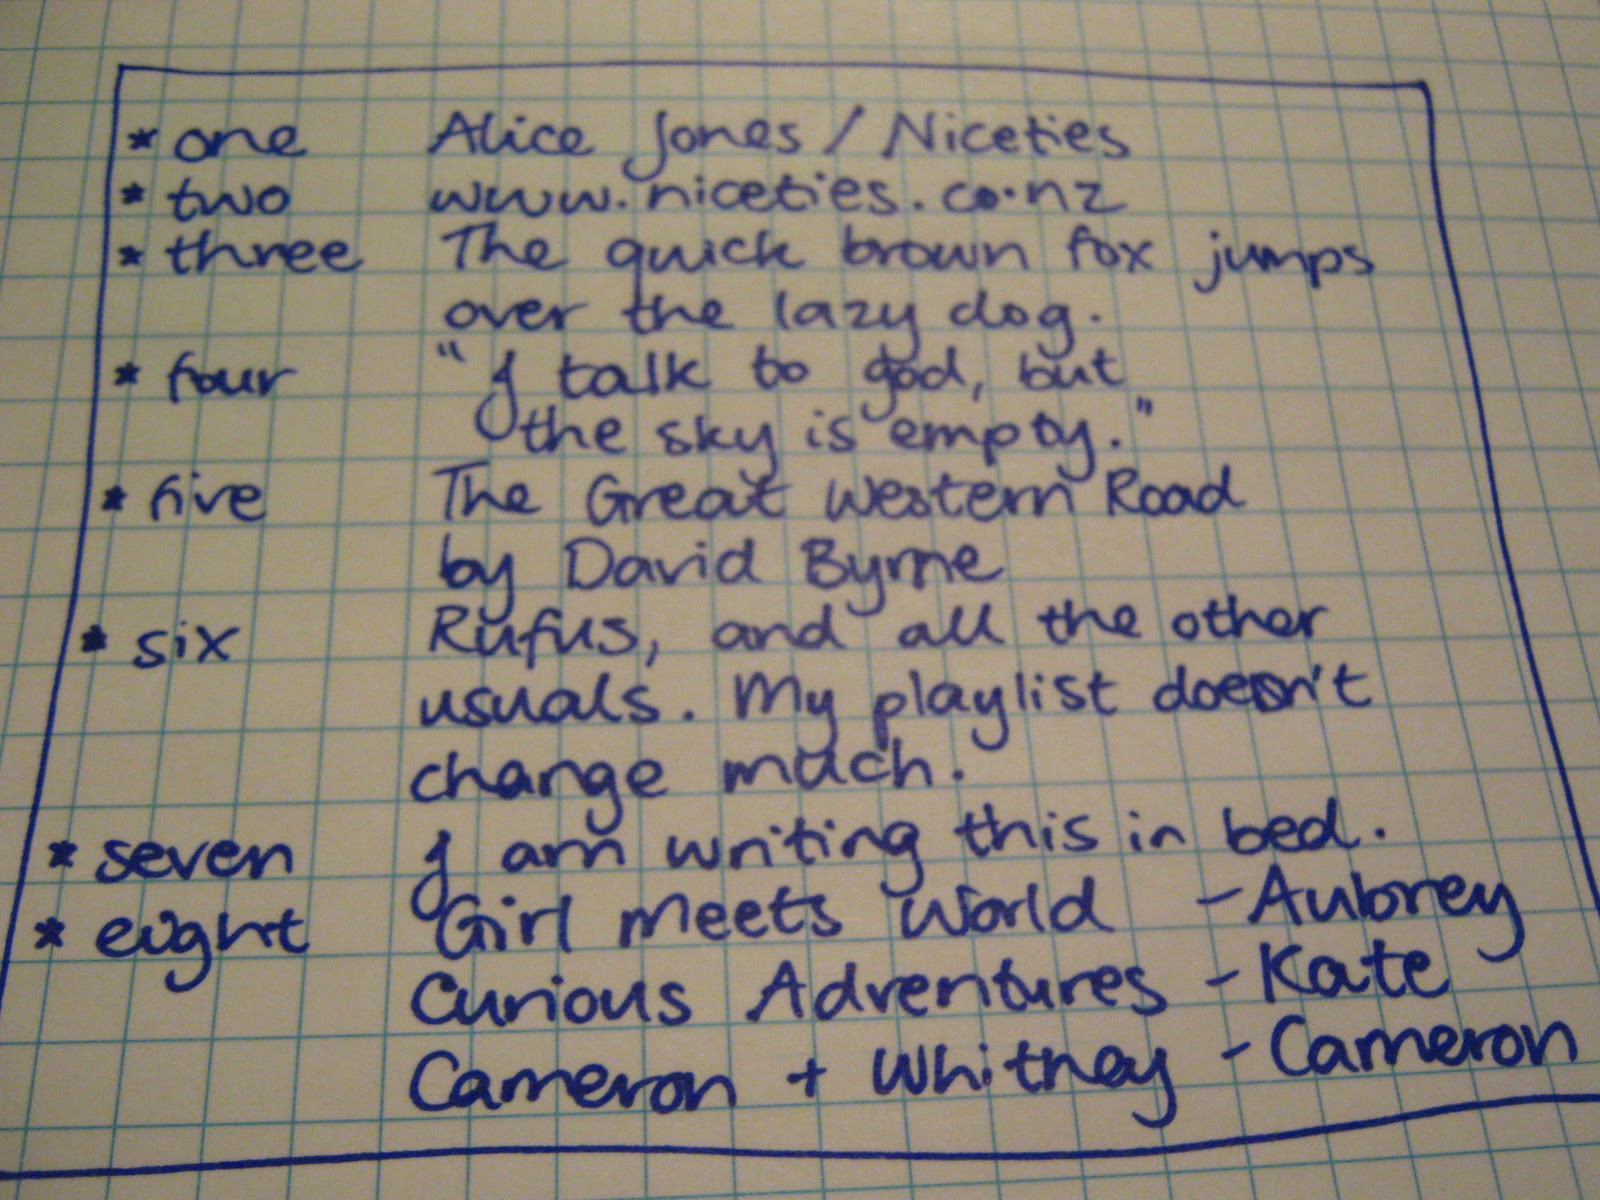 * one Alice Jones / Niceties
* two www.niceties.co.nz
* three The quick brown fox jumps
over the lazy dog.
* four "I talk to god, but
the sky is empty."
* five The Great Western Road
by David Byrne
* six Rufus, and all the other
usuals. My playlist doesn't
change much.
* seven I am writing this in bed.
* eight Girl Meets World - Aubrey
Curious Adventures - Kate
Cameron + Whitney - Cameron